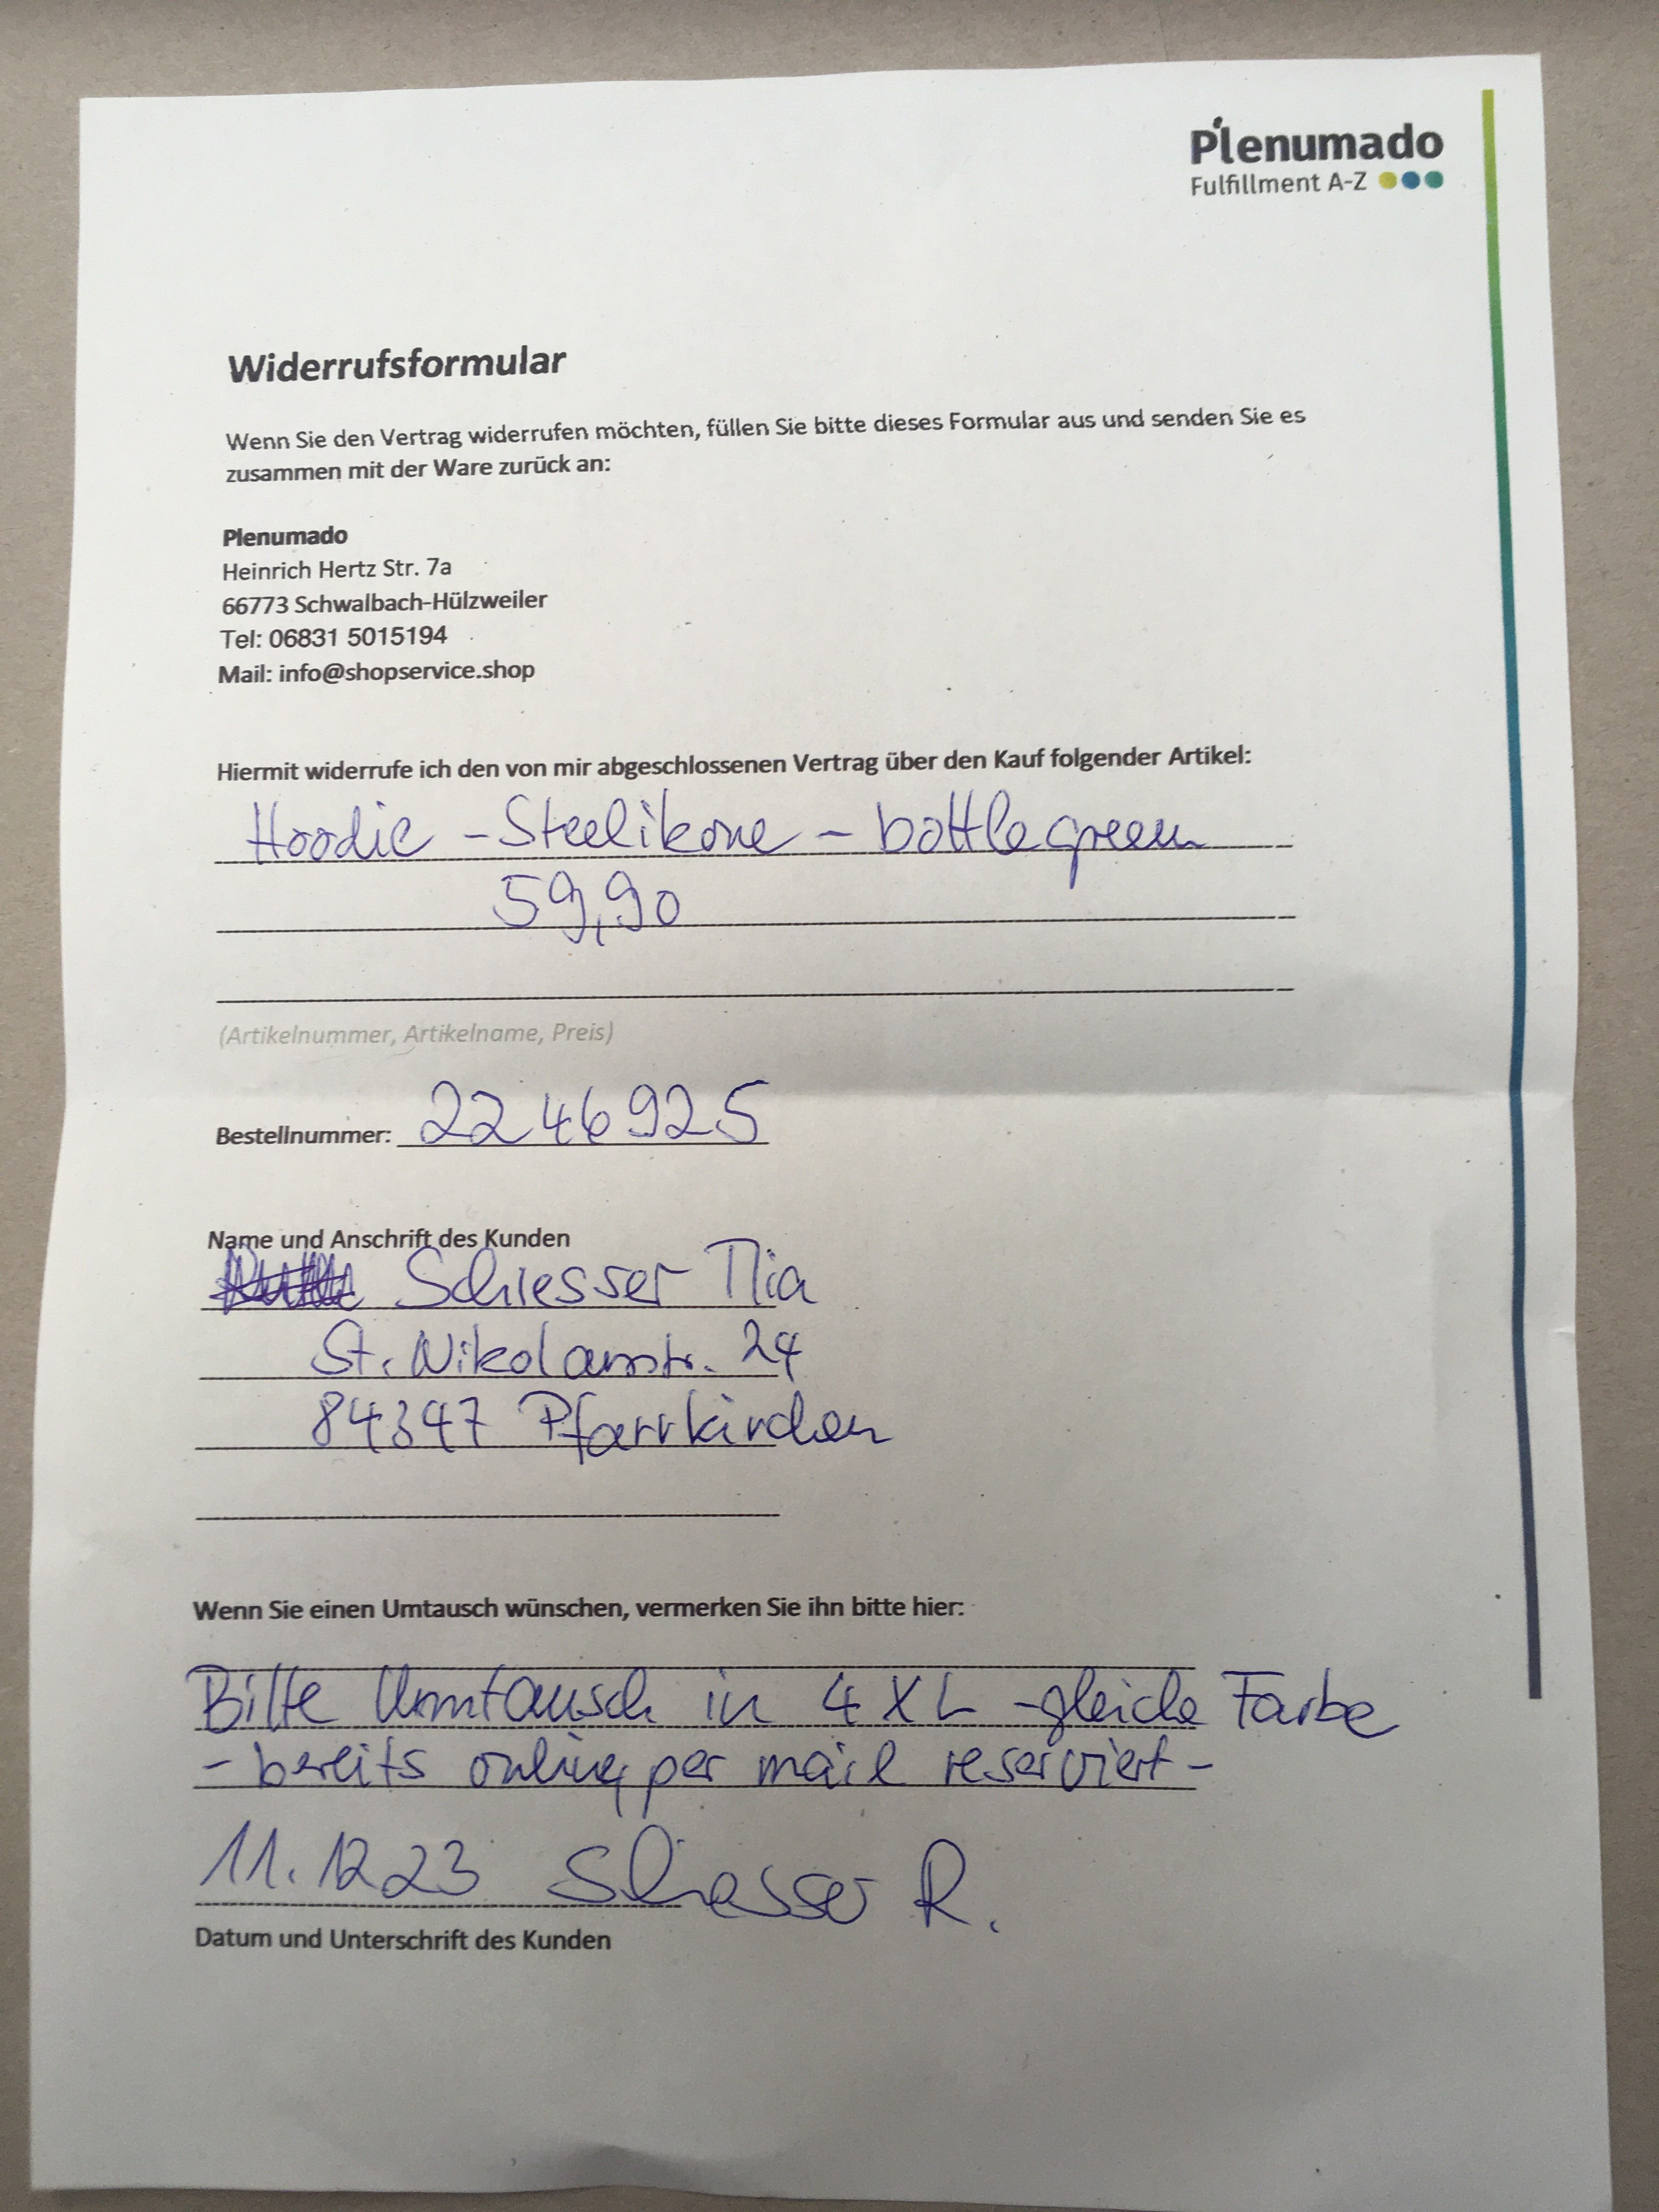 Plenumado
Fulfillment A-Z
Widerrufsformular
Wenn Sie den Vertrag widerrufen möchten, füllen Sie bitte dieses Formular aus und senden Sie es
zusammen mit der Ware zurück an:
Plenumado
Heinrich Hertz Str. 7a
66773 Schwalbach-Hülzweiler
Tel: 06831 5015194
Mail: info@shopservice.shop
Hiermit widerrufe ich den von mir abgeschlossenen Vertrag über den Kauf folgender Artikel:
Hoodie - Steelikone - bottlegreen
59,90
(Artikelnummer, Artikelname, Preis)
Bestellnummer: 2246925
Name und Anschrift des Kunden
Schiesser Mia
St. Nikolausstr. 24
84347 Pfarrkirchen
Wenn Sie einen Umtausch wünschen, vermerken Sie ihn bitte hier:
Bitte Umtausch in 4XL - gleiche Farbe
- bereits online per mail reserviert -
11.12.23 Schiesser R.
Datum und Unterschrift des Kunden